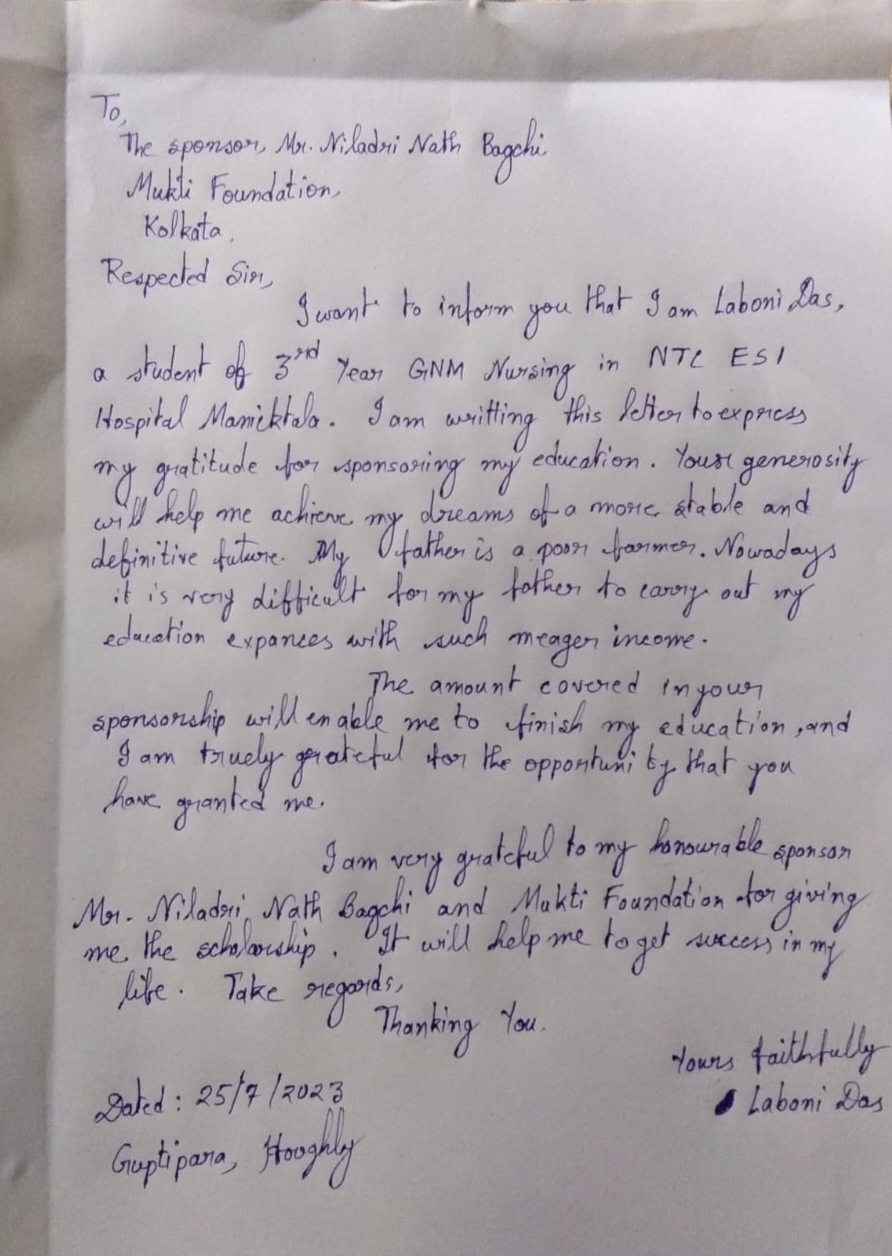 To,
The sponsor, Mr. Niladri Nath Bagchi
Mukti Foundation,
Kolkata,
Respected Sir,
I want to inform you that I am Laboni Das,
a student of 3rd Year GNM Nursing in NTC ESI
Hospital Manicktala. I am writting this letter to express
my gratitude for sponsoring my education. Your generosity
will help me achieve my dreams of a more stable and
definitive future. My father is a poor farmer. Nowadays
it is very difficult for my father to carry out my
education expances with such meager income.
The amount covered in your
sponsorship will enable me to finish my education, and
I am truely grateful for the opportunity that you
have granted me.
I am very grateful to my honourable sponsor
Mr. Niladri Nath Bagchi and Mukti Foundation for giving
me the scholarship. It will help me to get success in my
life. Take regards,
Thanking You.
Yours faithfully
Laboni Das
Dated: 25/7/2023
Guptipara, Hooghly